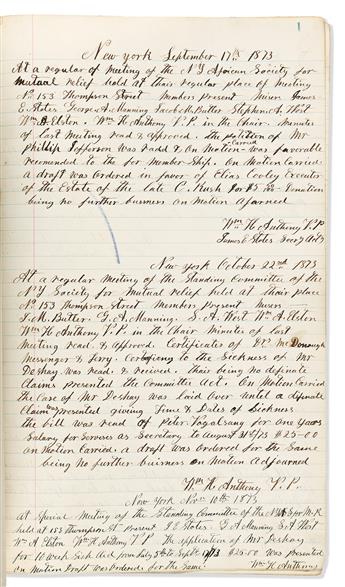 1
New York September 17th 1873
At a regular of meeting of the N.Y African Society for
mutual relief held at thair regular place of meeting
No 153 Thompson Street Members present James
E Stotes George A. Manning Jacob M. Butler Stephen A. West
Wm A. Elston. Wm H. Anthony V.P in the Chair. Minutes
of last meeting read & approved. the petition of Mr
Phillip Jefferson was read & on Motion Carried was favorable
recomended to the for Member Ship. On Motion Carried
a draft was Ordered in favor of Elias Cooley Executer
of the Estate of the late C. Rush for $5 Donation
being no further business on Motion ajorned
Wm H. Anthony V.P
James E Stotes
New York October 22nd 1873
At a regular Meeting of the Standing Committee of the
N Y Society for Mutual relief held at thair place
No 153 Thompson Street Members present
J. M. Butler. G. A. Manning. S. A. West Wm A. Elston
Wm H. Anthony V.P. in the Chair Minutes of last
Meeting read. & approved. Certificates of McDonough
Messenger & Terry. to the Sickness of Mr
Deshay was read. & recived. thair being no definate
Claims presented the Committee Act. On Motion Carried
the Case of Mr Deshay was laid over untel a definate
Claim was presented giving Time & Dates of Sickness
the bill was read of Peter Vogalsang for one years
Salary for Servises as Secretary to August 31st/73 $25-00
on Motion Carried. a draft was Ordered for the Same
being no further buisness on Motion Adjourned
Wm H. Anthony V.P.
New York Nov 10th 1873
At Special Meeting of the Standing Committee of the for M.R
held at 153 thompson St Present J E Stotes. G A Manning S. A West
Wm A. Elston Wm H. Anthony V P The application of Mr Deshay
for 10 week Sick Aid from July 5th to Sept /73 $25.00 Was Presented
on Motion Draft was Ordered for the Same. Wm H. Anthony